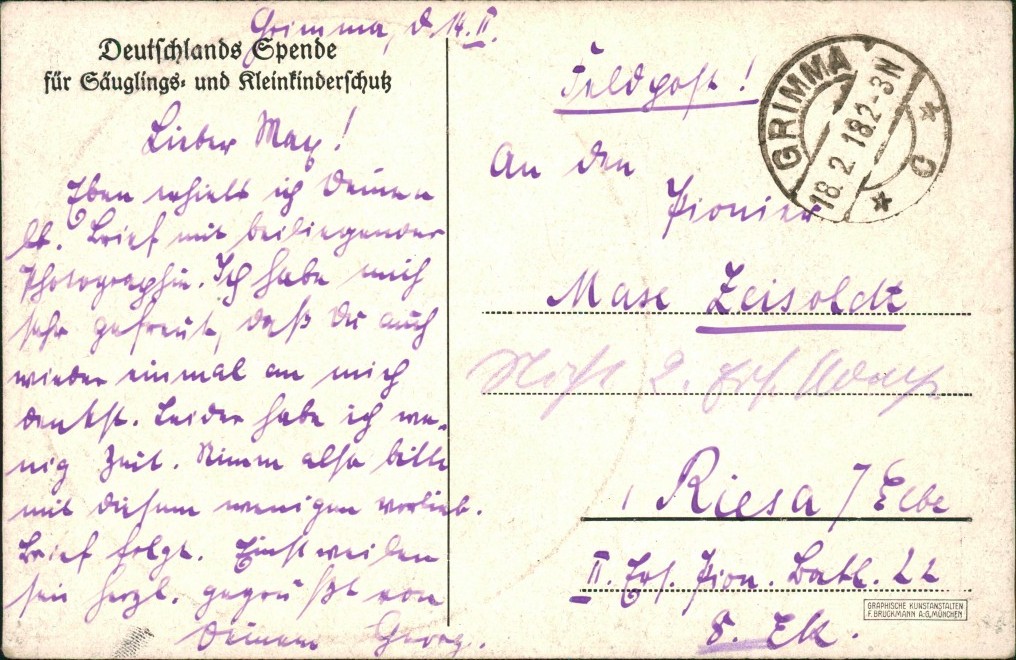 Grimma, d. 14. II.
Deutschlands Spende
für Säuglings- und Kleinkinderschutz
Lieber Max!
Eben erhielt ich Deinen
lb. Brief mit beiliegender
Photographie. Ich habe mich
sehr gefreut, daß Du auch
wieder einmal an mich
denkst. Leider habe ich we-
nig Zeit. Nimm also bitte
mit diesem wenigen vorlieb.
Brief folgt. Einstweilen
sei herzl. gegrüßt von
Deinem Georg.
Feldpost!
GRIMMA
18.2.18.2-3N
* C *
An den
Pionier
Max Zeisoldt
2. Ers.
Riesa / Elbe
II. Ers. Pion. Batl. 22
8. EK.
GRAPHISCHE KUNSTANSTALTEN
F. BRUCKMANN A.G. MÜNCHEN